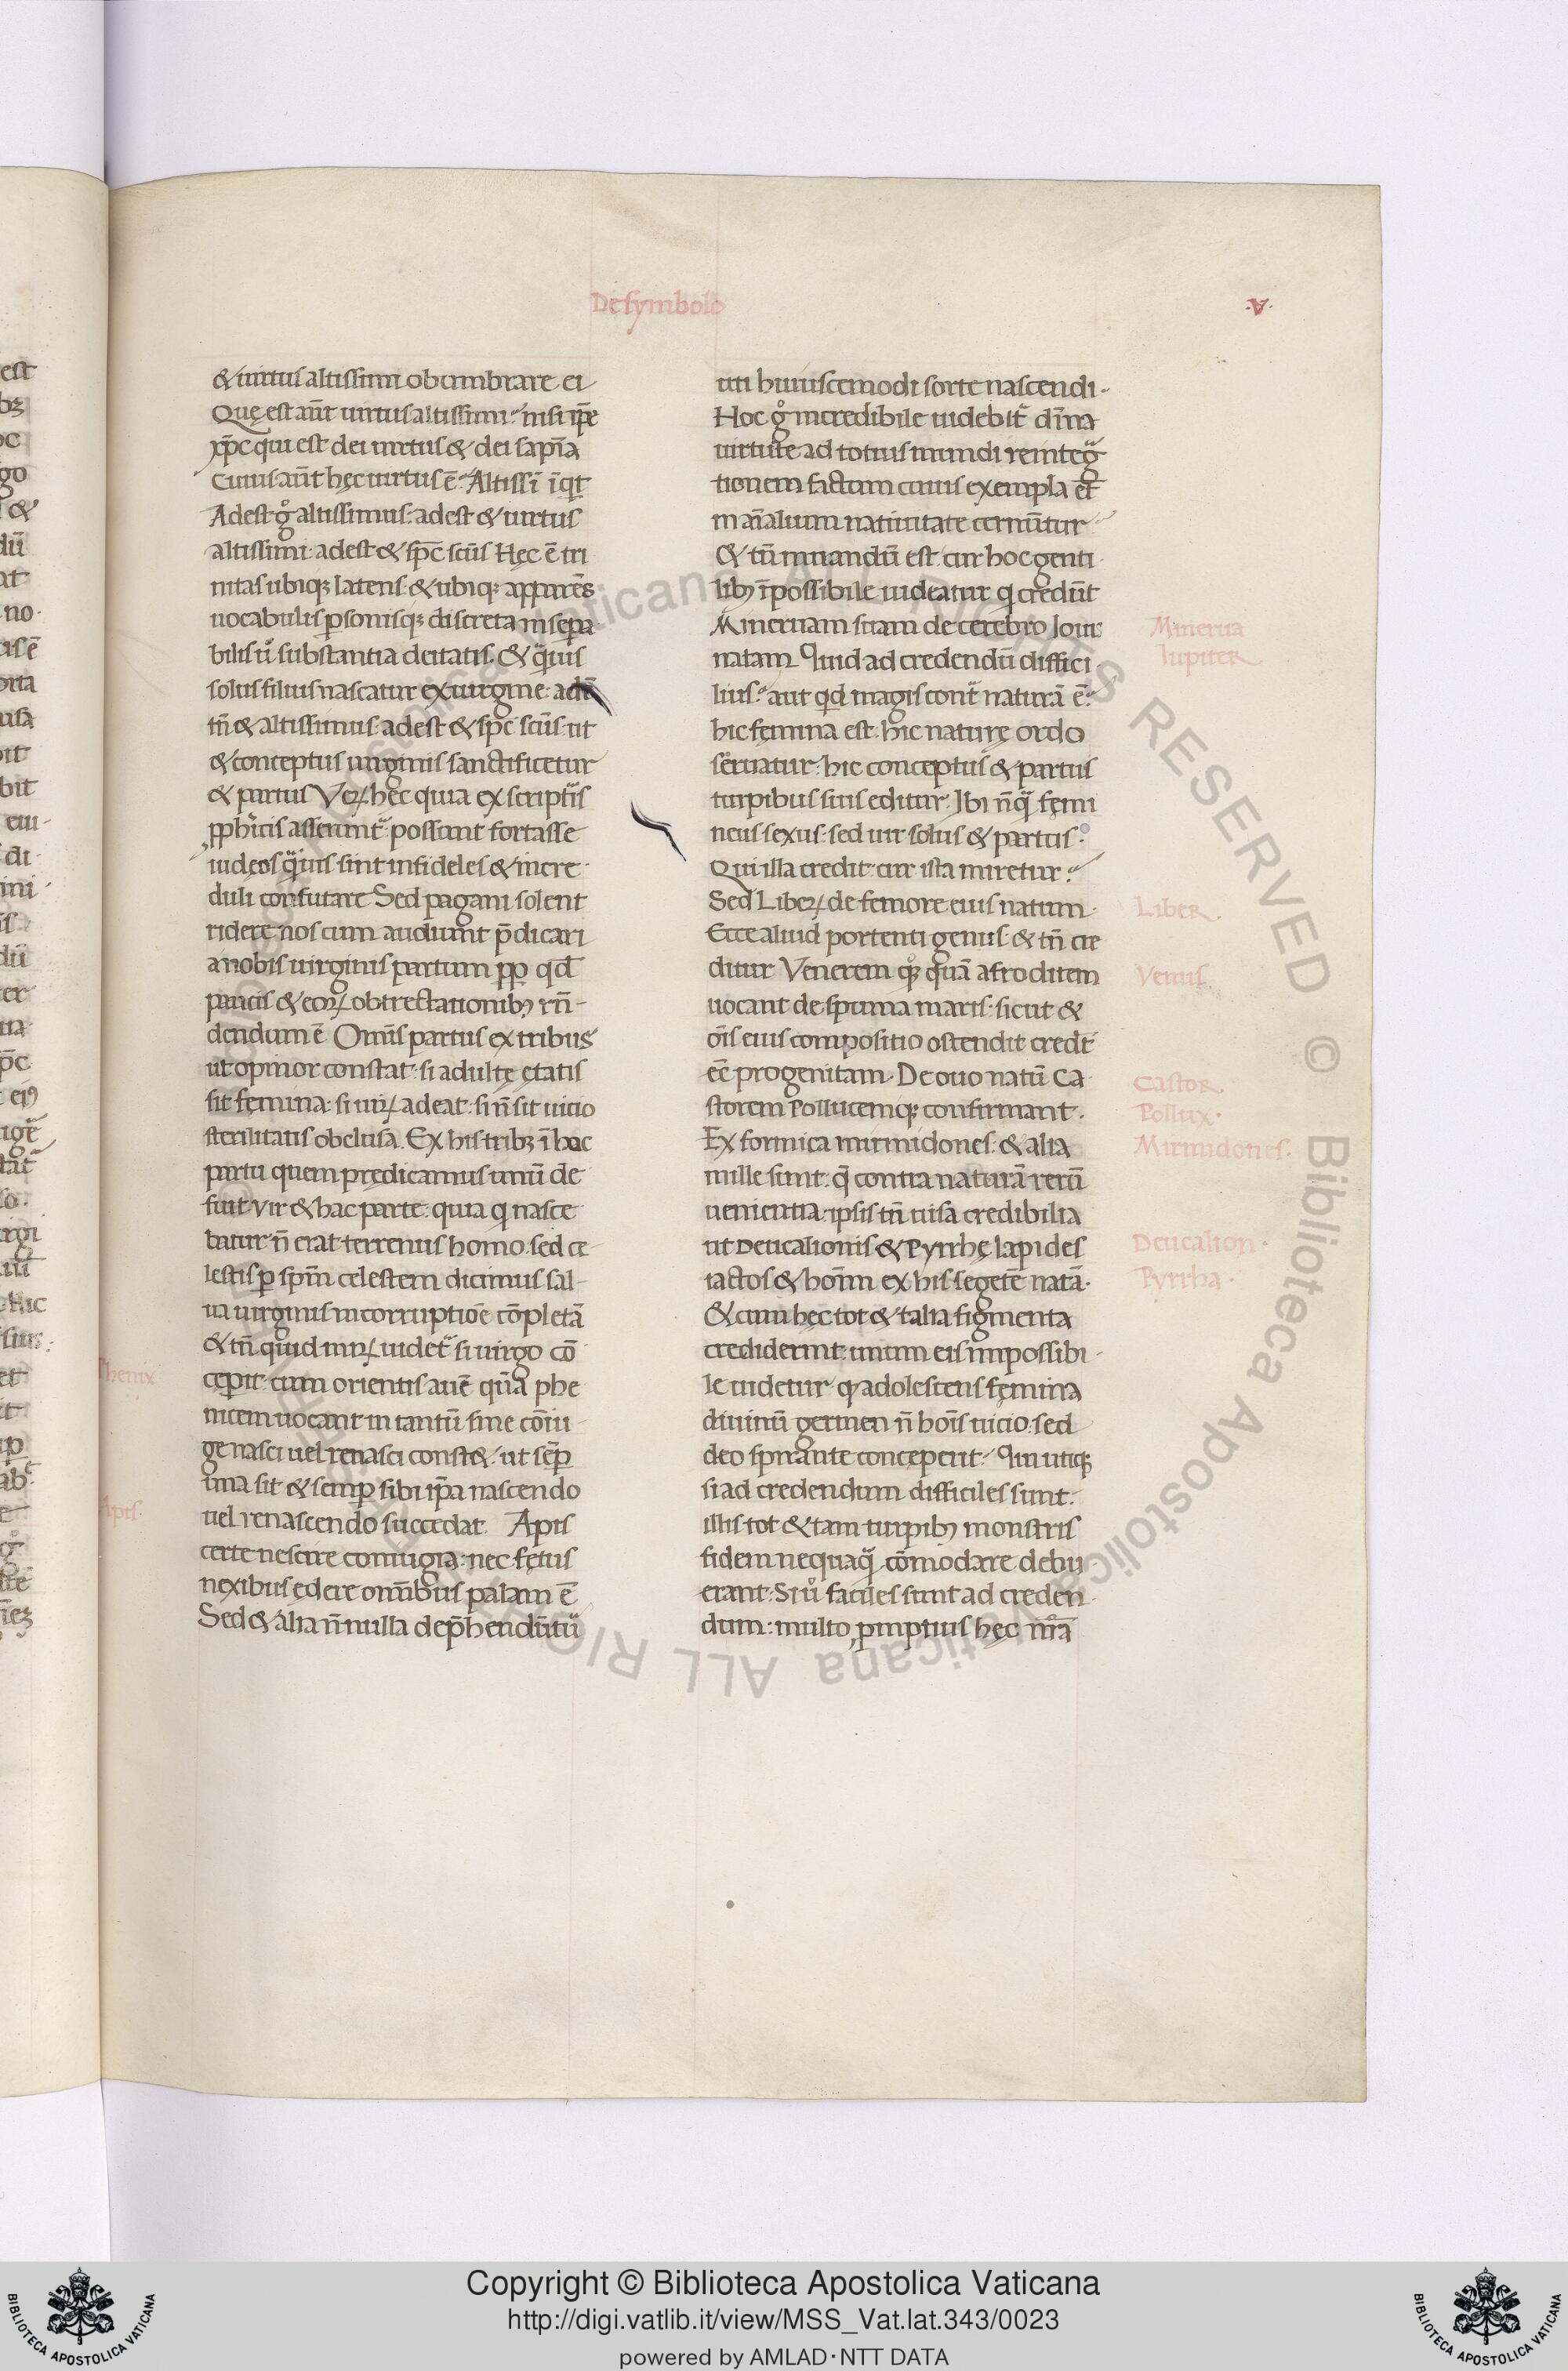 De symbolo
.V.
& uirtus altissimi obumbrare ei
Quę est aūt uirtus altissimi nisi ip̄e
xp̄c qui est dei uirtus & dei sapīa
Cuius aūt hęc uirtus ē Altissī īqt
Adest gͦ altissimus: adest & uirtus
altissimi: adest & sp̄c sc̄us Hęc ē tri
nitas ubiqꝫ latens & ubiqꝫ apparēs
uocabulis ꝑsonisqꝫ discreta insepa
bilis uͦ substantia deitatis. & qͣuis
solus filius nascatur ex uirgine: adē
tn̄ & altissimus adest & sp̄c sc̄us ut
& conceptus uirginis sanctificetur
& partus Veꝝ hęc quia ex scriptis
ꝓphīcis asserunt᷑ possunt fortasse
iudęos qͣuis sint infideles & incre
duli confutare Sed pagani solent
ridere nos cum audiunt p̄dicari
a nobis uirginis partum ꝓꝑ qd̄
paucis & eoꝝ obtrectationibꝰ rn̄
dendum ē Om̄is partus ex tribus
ut opinor constat: si adultę ętatis
sit femina: si uiꝝ adeat: si n̄ sit uicio
sterilitatis obclusa. Ex his tribꝫ ī hoc
partu quem prędicamus unū de
fuit Vir & hac parte: quia q nasce
batur n̄ erat terrenus homo sed ce
lestis ꝑ spm̄ celestem dicimus sal
ua uirginis incorruptiōe cōpletā
& tn̄ quid miꝝ uidet᷑ si uirgo cō
cęperit: cum orientis auē quā phe
nicem uocant in tantū sine cōiu
ge nasci uel renasci const& ut sēꝑ
una sit & semꝑ sibi ip̄a nascendo
uel renascendo succedat. Apis
certe nescire coniugia: nec fętus
nexibus ędere omnibus palam ē
Sed & alia n̄ nulla dep̄hendūtur
Phenix
Apis.
uti huiuscemodi sorte nascendi.
Hoc gͦ incredibile uidebit᷑ diuīa
uirtute ad totius mundi reinteg̃
tionem factum cuius exempla et̄
in aīalium natiuitate cernūtur
& tn̄ mirandū est cur hoc genti
libꝰ īpossibile uideatur q credūt
Mineruam suam de cerebro Iouis
natam Quid ad credendū diffici
lius aut qd magis cont᷑ naturā ē
hic femina est: hic naturę ordo
seruatur: hic conceptus & partus
turpibus suis editur. Ibi nq̃ femi
neus sexus: sed uir solus & partus.
Qui illa credit: cur ista miretur
Sed Libeꝝ de femore eius natum
Ecce aliud portenti genus & tn̄ cre
ditur Venerem qꝫ quā afroditem
uocant de spuma maris. sicut &
oīs eius compositio ostendit credt̄
ēē progenitam. De ouo natū Ca
storem Pollucemqꝫ confirmant.
Ex formica mirmidones. & alia
mille sunt. q̄ contra naturā rerū
uenientia: ipsis tn̄ uisa credibilia
ut Deucalionis & Pyrrhę lapides
iactos & hoīm ex his segetē natā.
& cum hęc tot & talia figmenta
crediderint unum eis impossibi
le uidetur qꝫ adolescens femina
diuinū germen n̄ hoīs uicio: sed
deo spirante conceperit. Qui utiqꝫ
si ad credendum difficiles sunt.
illis tot & tam turpibꝰ monstris
fidem nequaq̃ cōmodare debu
erant: Si uͦ faciles sunt ad creden
dum: multo ꝓmptius hęc nr̄a
Minerua
Iupiter
Liber.
Venus
Castor.
Pollux.
Mirmidones.
Deucalion.
Pyrrha.
Copyright © Biblioteca Apostolica Vaticana
http://digi.vatlib.it/view/MSS_Vat.lat.343/0023
powered by AMLAD·NTT DATA